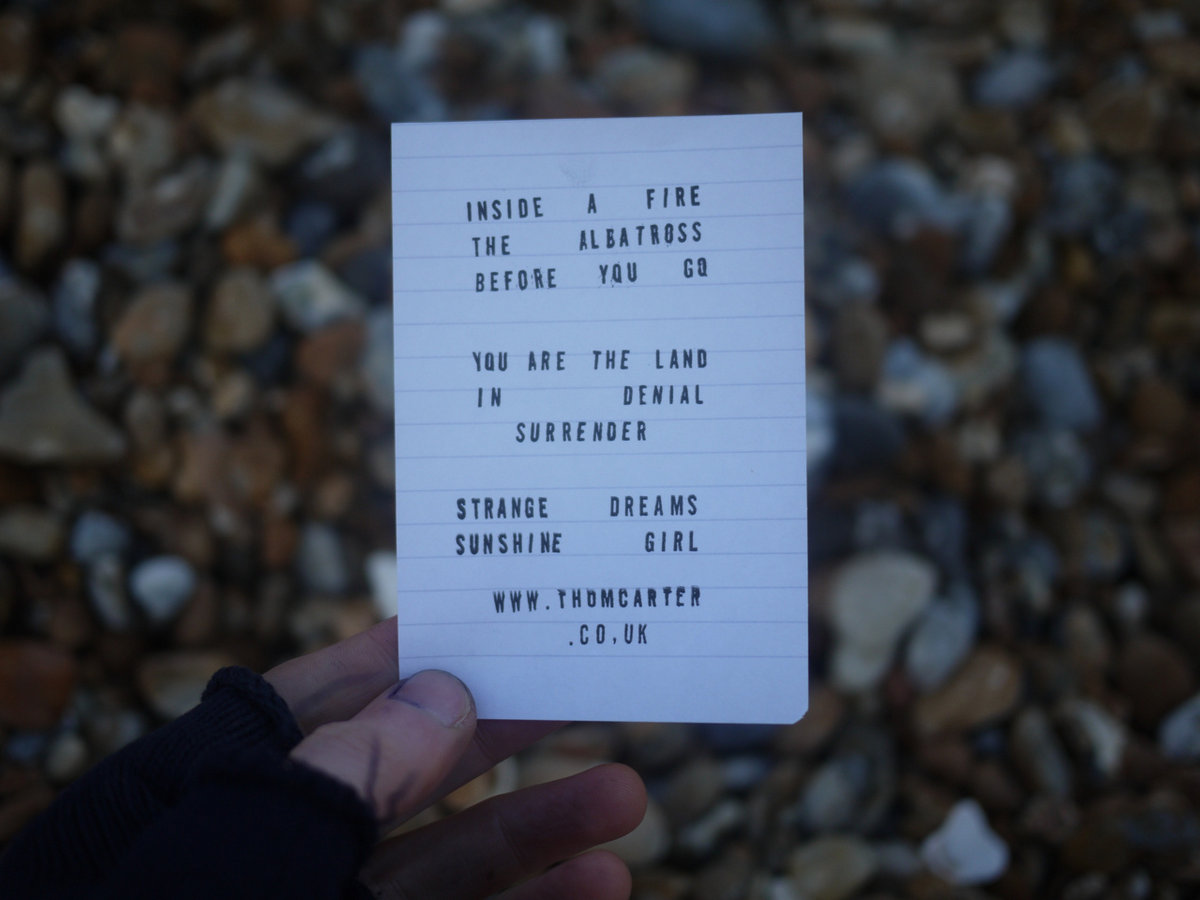 INSIDE A FIRE
THE ALBATROSS
BEFORE YOU GO
YOU ARE THE LAND
IN DENIAL
SURRENDER
STRANGE DREAMS
SUNSHINE GIRL
WWW.THOMCARTER
.CO,UK